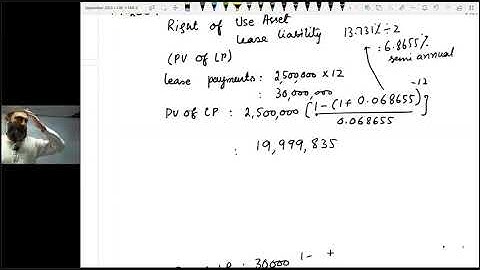 Right of Use Asset
Lease Liability
13.731% ÷ 2
: 6.8655%
semi annual
(PV of LP)
Lease payments : 2,500,000 × 12
: 30,000,000
PV of LP : 2,500,000 [1-(1+0.068655)^-12 / 0.068655]
: 19,999,835
: 30000 1- +